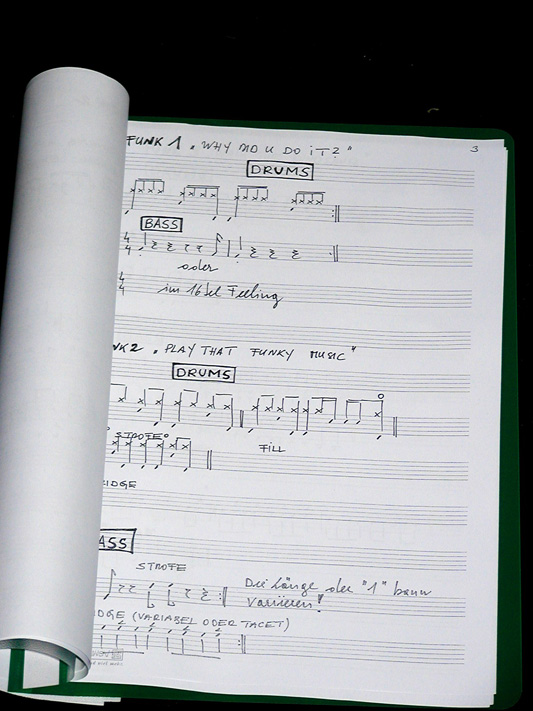 FUNK 1 „WHY DID U DO iT?" 3
DRUMS
BASS
4
4
oder
4
4
im 16tel Feeling
NK2 „PLAY THAT FUNKY MUSIC"
DRUMS
STROFE
FiLL
IDGE
ASS
STROFE
Die Länge der "1" kann
variieren!
DGE (VARIABEL ODER TACET)